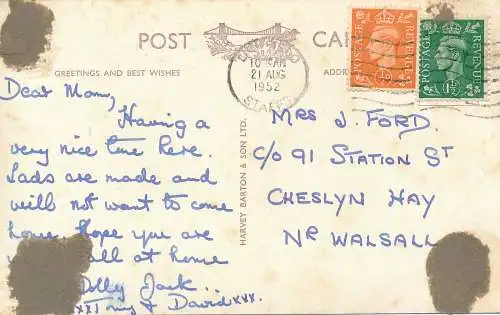 POST CARD
GREETINGS AND BEST WISHES
ADDR
10 AM
21 AUG
1952
STAFF
POSTAGE REVENUE
½D
POSTAGE REVENUE
1½D
Dear Mom,
Having a
very nice time here.
Lads are made and
will not want to come
home. Hope you are
all at home
Dolly Jack..
xxTony & David xxx.
HARVEY BARTON & SON LTD.
MRS J. FORD.
C/O 91 STATION ST
CHESLYN HAY
NR WALSALL